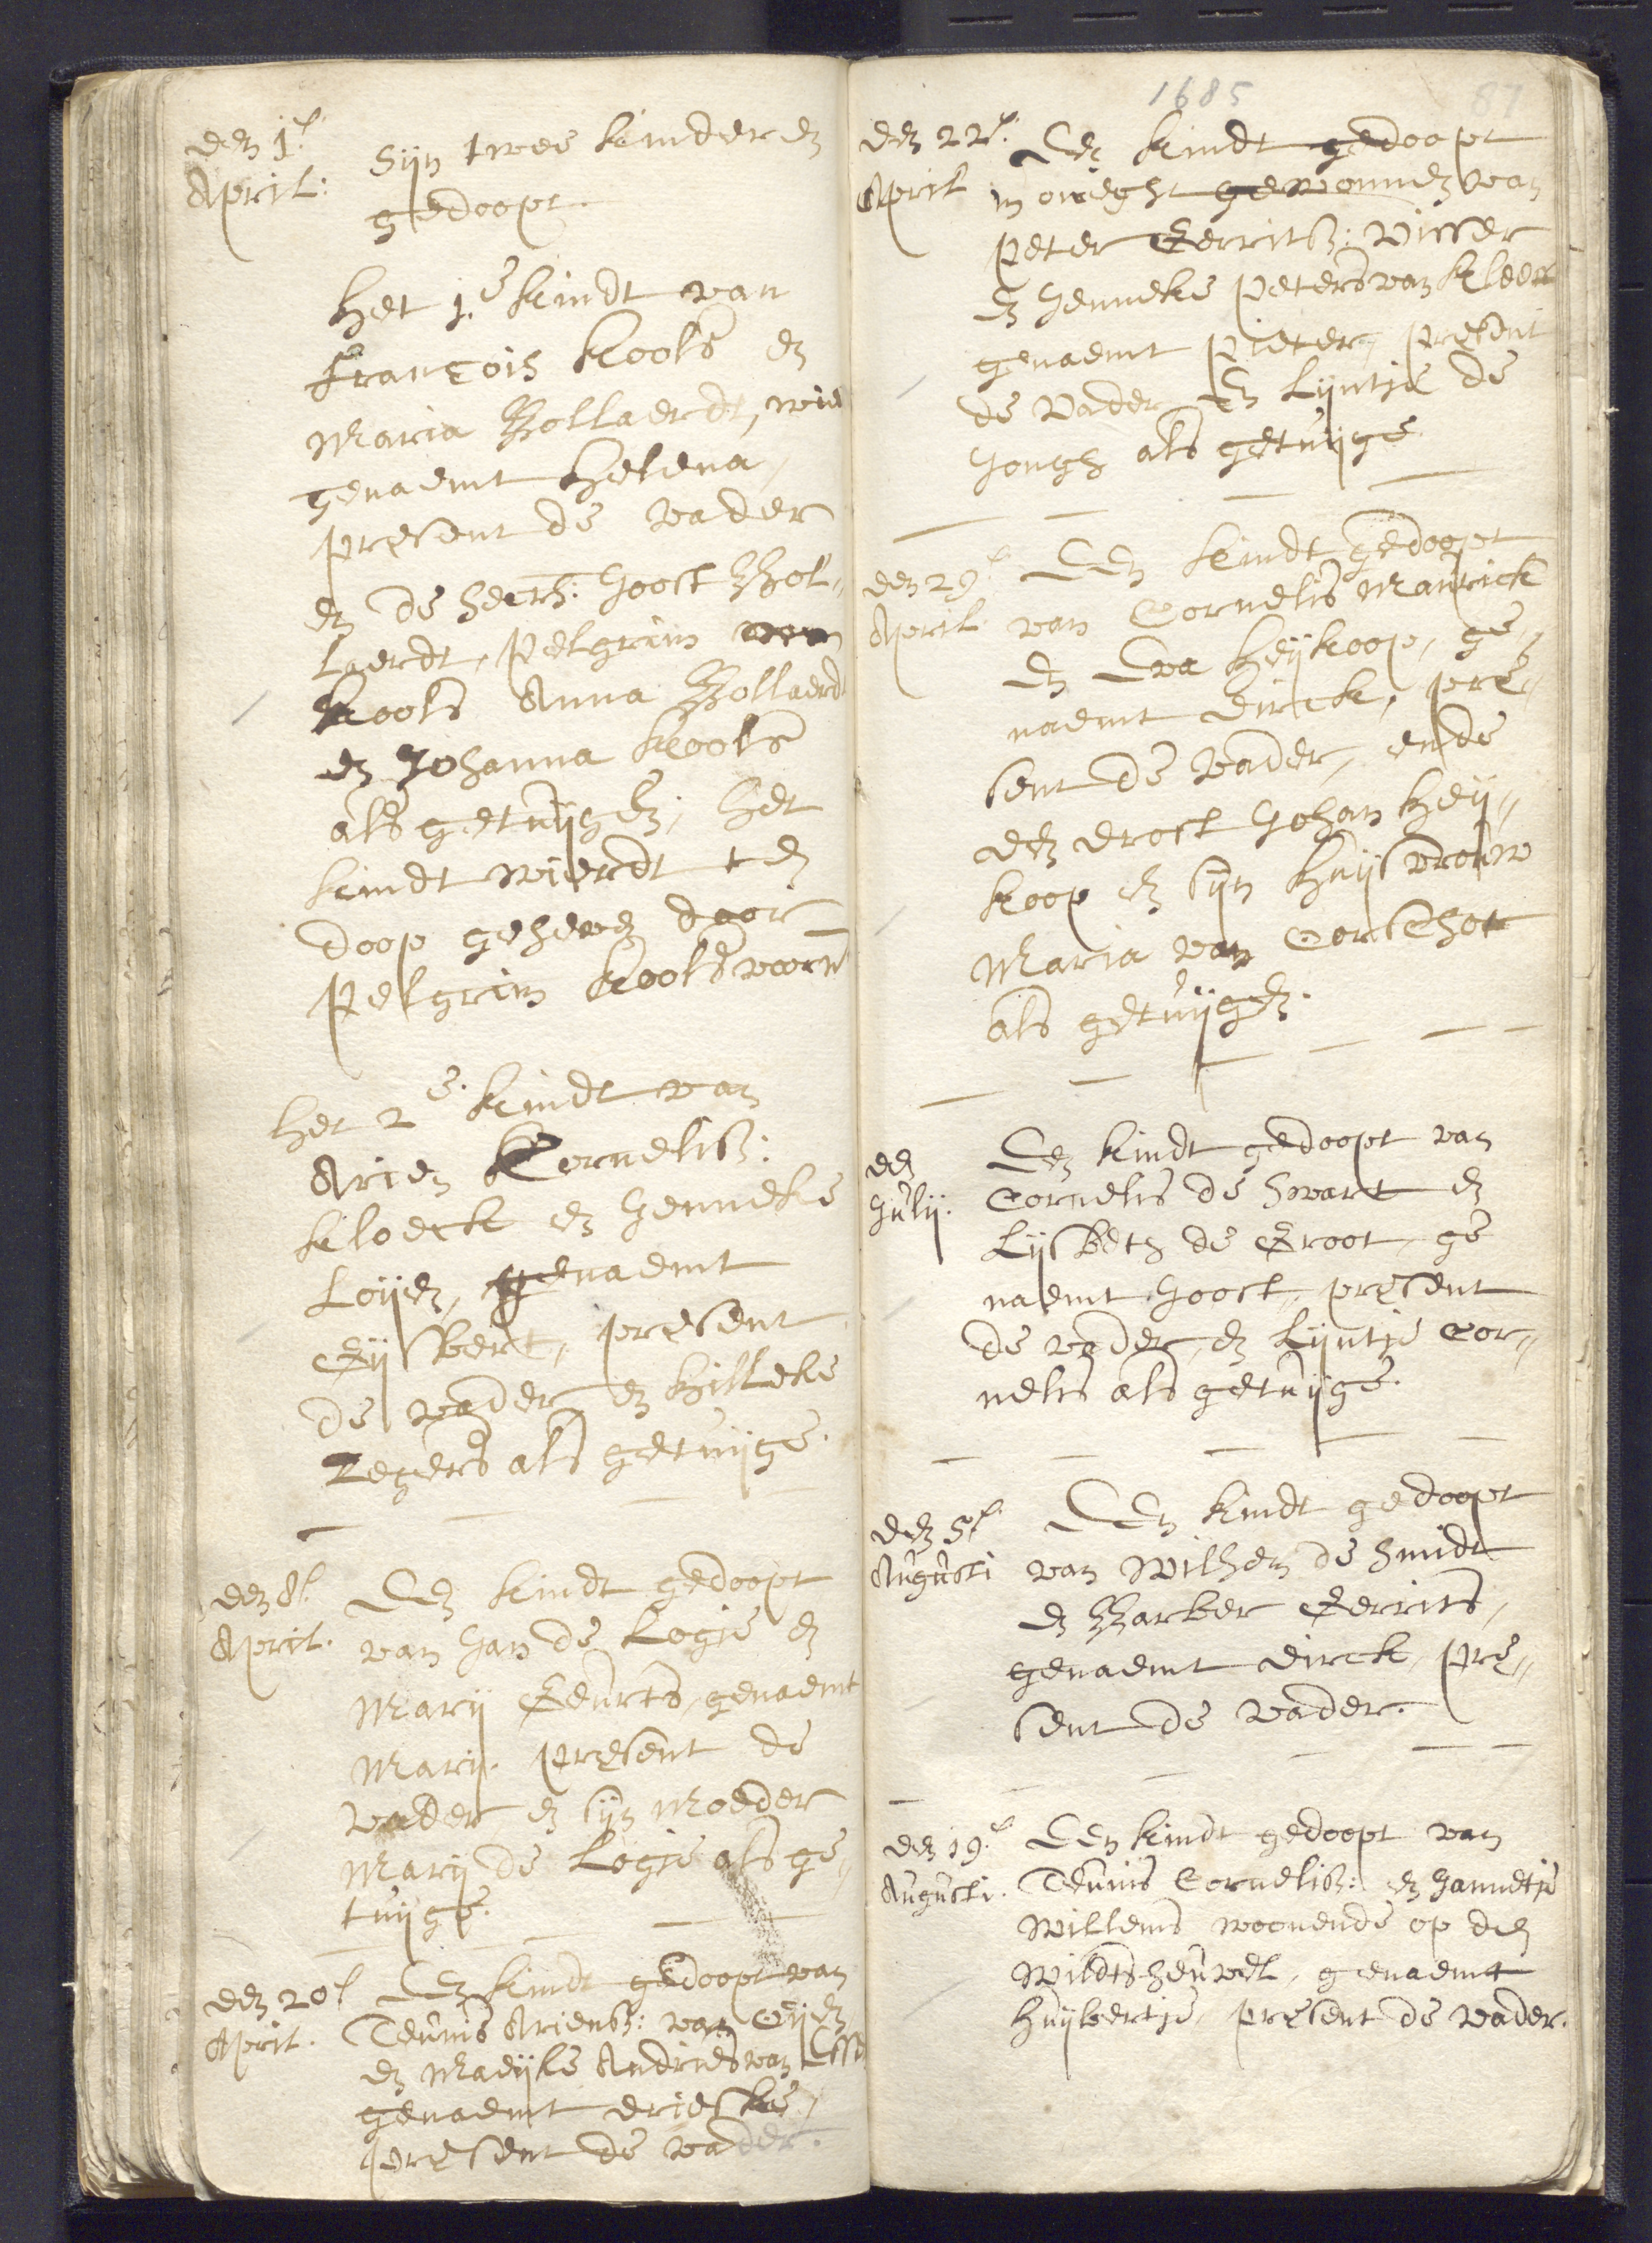 den 1.e
April:
Sijn twee kinderen
gedoopt.
Het 1.e kindt van
François Kools en
Maria Bollaerdt, wie
genaemt Helena,
present de vader
en de heer: Joost Bol„
laerdt, Pelgrim
Kools Anna Bollaerdt
en Johanna Kools
als getuijgen; het
kindt wierdt ten
doop geheven door
Pelgrim Kools voorn
Het 2.e kindt van
Arien Cornelisz:
Kloeck en Jenneke
Loijen, genaemt
Gijsbert, present
de vader en Hilleke
Zegers als getuijge.
den 8.e
April.
Een kindt gedoopt
van Jan de Logie en
Marij Geurts, genaemt
Marij. present de
vader en sijn moeder
Marij de Logie als ge„
tuijge.
den 20.e
April.
Een kindt gedoopt van
Teunis Ariensz: van Eijck
en Maeijke Andries van Esse
genaemt Drieske,
present de vader.
1685
87
den 22.e
April
Een kindt gedoopt
in gewonnen van
Peter Gerritsz: Visser
en Jenneke Peters van Kleeff
genaemt Pieter, present
de vader en Lijntje de
Jongh als getuijge
den 29.e
April
Een kindt gedoopt
van Cornelis Maurick
en Eva Heijkoop, ge„
naemt Dirck, pre„
sent de vader, ende
den drost Johan Heij„
koop en sijn huijsvrouw
Maria van Oorschot
als getuijgen.
den
Julij.
Een kindt gedoopt van
Cornelis de Swart en
Lijsbeth de Groot, ge
naemt Joost, present
de vader, en Lijntje Cor„
nelis als getuijge.
den 5.e
Augusti
Een kindt gedoopt
van Wilhem de Smidt
en Barber Gerrits,
genaemt Dirck, pre„
sent de vader.
den 19.e
Augusti.
Een kindt gedoopt van
Teunis Cornelisz: en Jannetje
Willems woonende op den
Wildtsheuvel, genaemt
Huijbertje, present de vader.